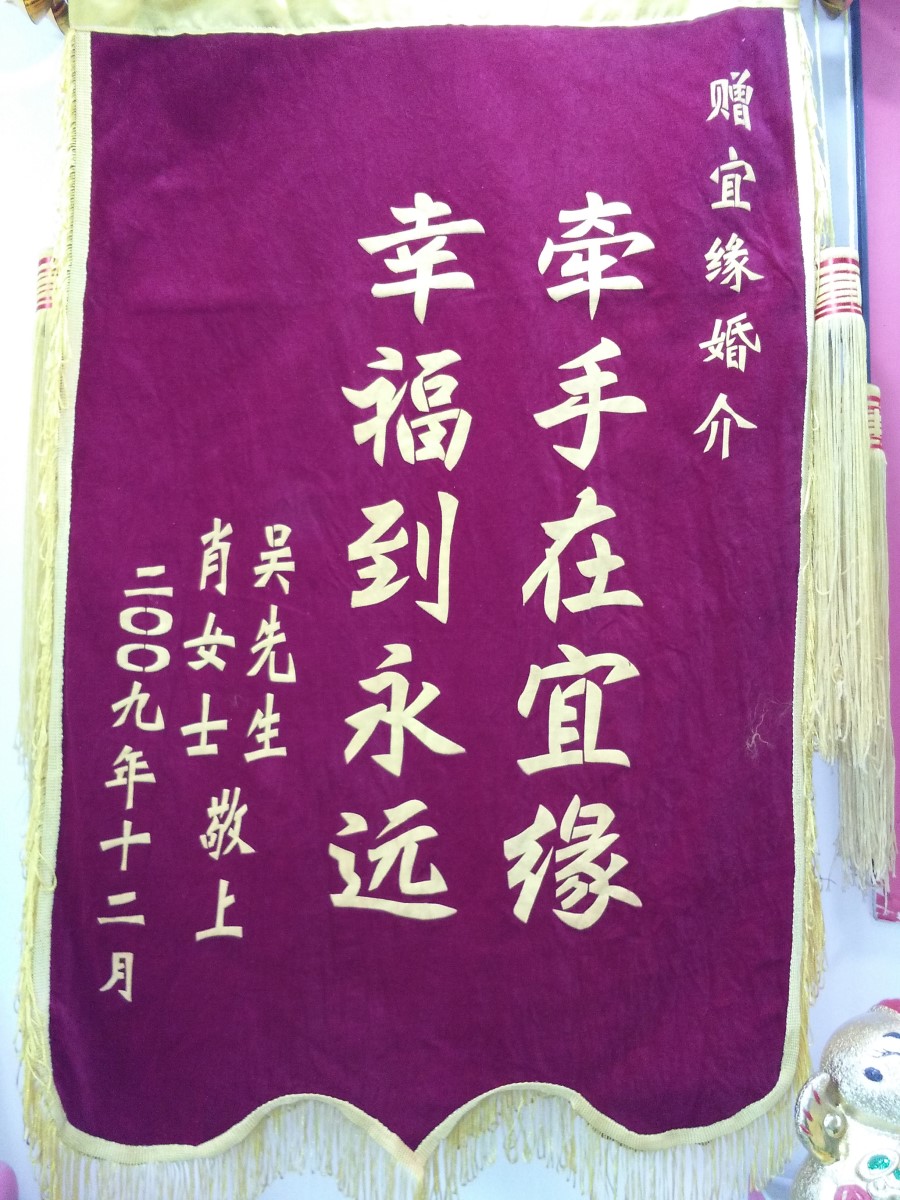 赠宜缘婚介
牵手在宜缘
幸福到永远
吴先生
肖女士
敬上
二〇〇九年十二月